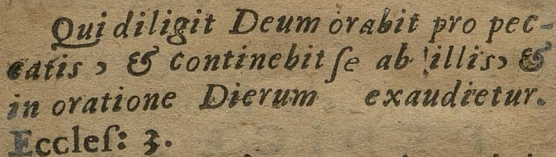 Qui diligit Deum orabit pro pec-
catis , & continebit ſe ab illis, &
in oratione Dierum exaudietur.
Eccleſ: 3.